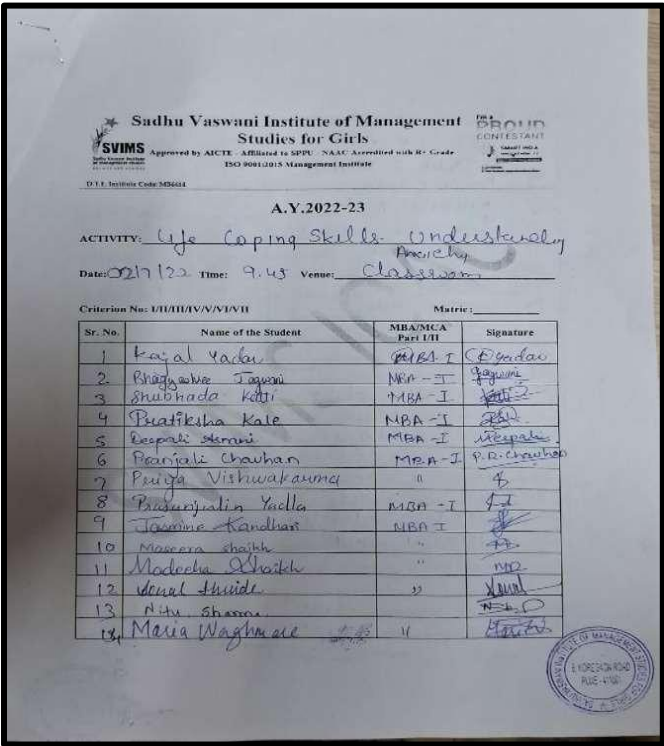 Sadhu Vaswani Institute of Management
Studies for Girls
Approved by AICTE - Affiliated to SPPU - NAAC Accredited with B+ Grade
ISO 9001:2015 Management Institute
SVIMS
I'm a
PROUD
CONTESTANT
D.T.E. Institute Code:
A.Y.2022-23
ACTIVITY: Life Coping Skills- Understanding
Anxiety
Date: Time: 9.45 Venue: Classroom
Criterion No: I/II/III/IV/V/VI/VII Matric:
Sr. No. Name of the Student MBA/MCA Part I/II Signature
1 Kajal Yadav MBA-I K Yadav
2 Bhagyashree Jagwani MBA-I Jagwani
3 Shubhada Katti MBA-I
4 Pratiksha Kale MBA-I
5 Deepali Asnani MBA-I Deepali
6 Pranjali Chavhan MBA-I P.R.Chavhan
7 Priya Vishwakarma "
8 Yadla MBA-I
9 Jasmine Kandhari MBA I
10 Maseera shaikh "
11 Madeeha Shaikh "
12 Sonal "
13 Nitu Sharma
14 Maria Waghmare "